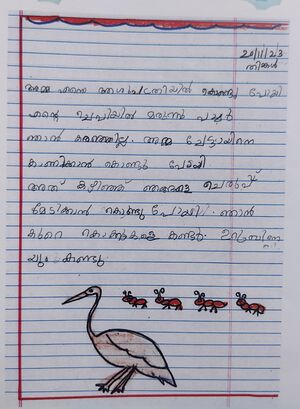 20/11/23
തിങ്കൾ
അമ്മ എന്നെ ആശുപത്രിയിൽ കൊണ്ടു പോയി
എന്റെ ചെവിയിൽ മരുന്ന്
ഞാൻ കരഞ്ഞില്ല. അമ്മ ചേട്ടായിനെ
കാണിക്കാൻ കൊണ്ടു പോയി
അത് കഴിഞ്ഞ് ഞങ്ങളെ ചെരുപ്പ്
മേടിക്കാൻ കൊണ്ടു പോയി. ഞാൻ
കുറെ കൊക്കുകളെ കണ്ടു. ഉറുമ്പിനെ
യും കണ്ടു.